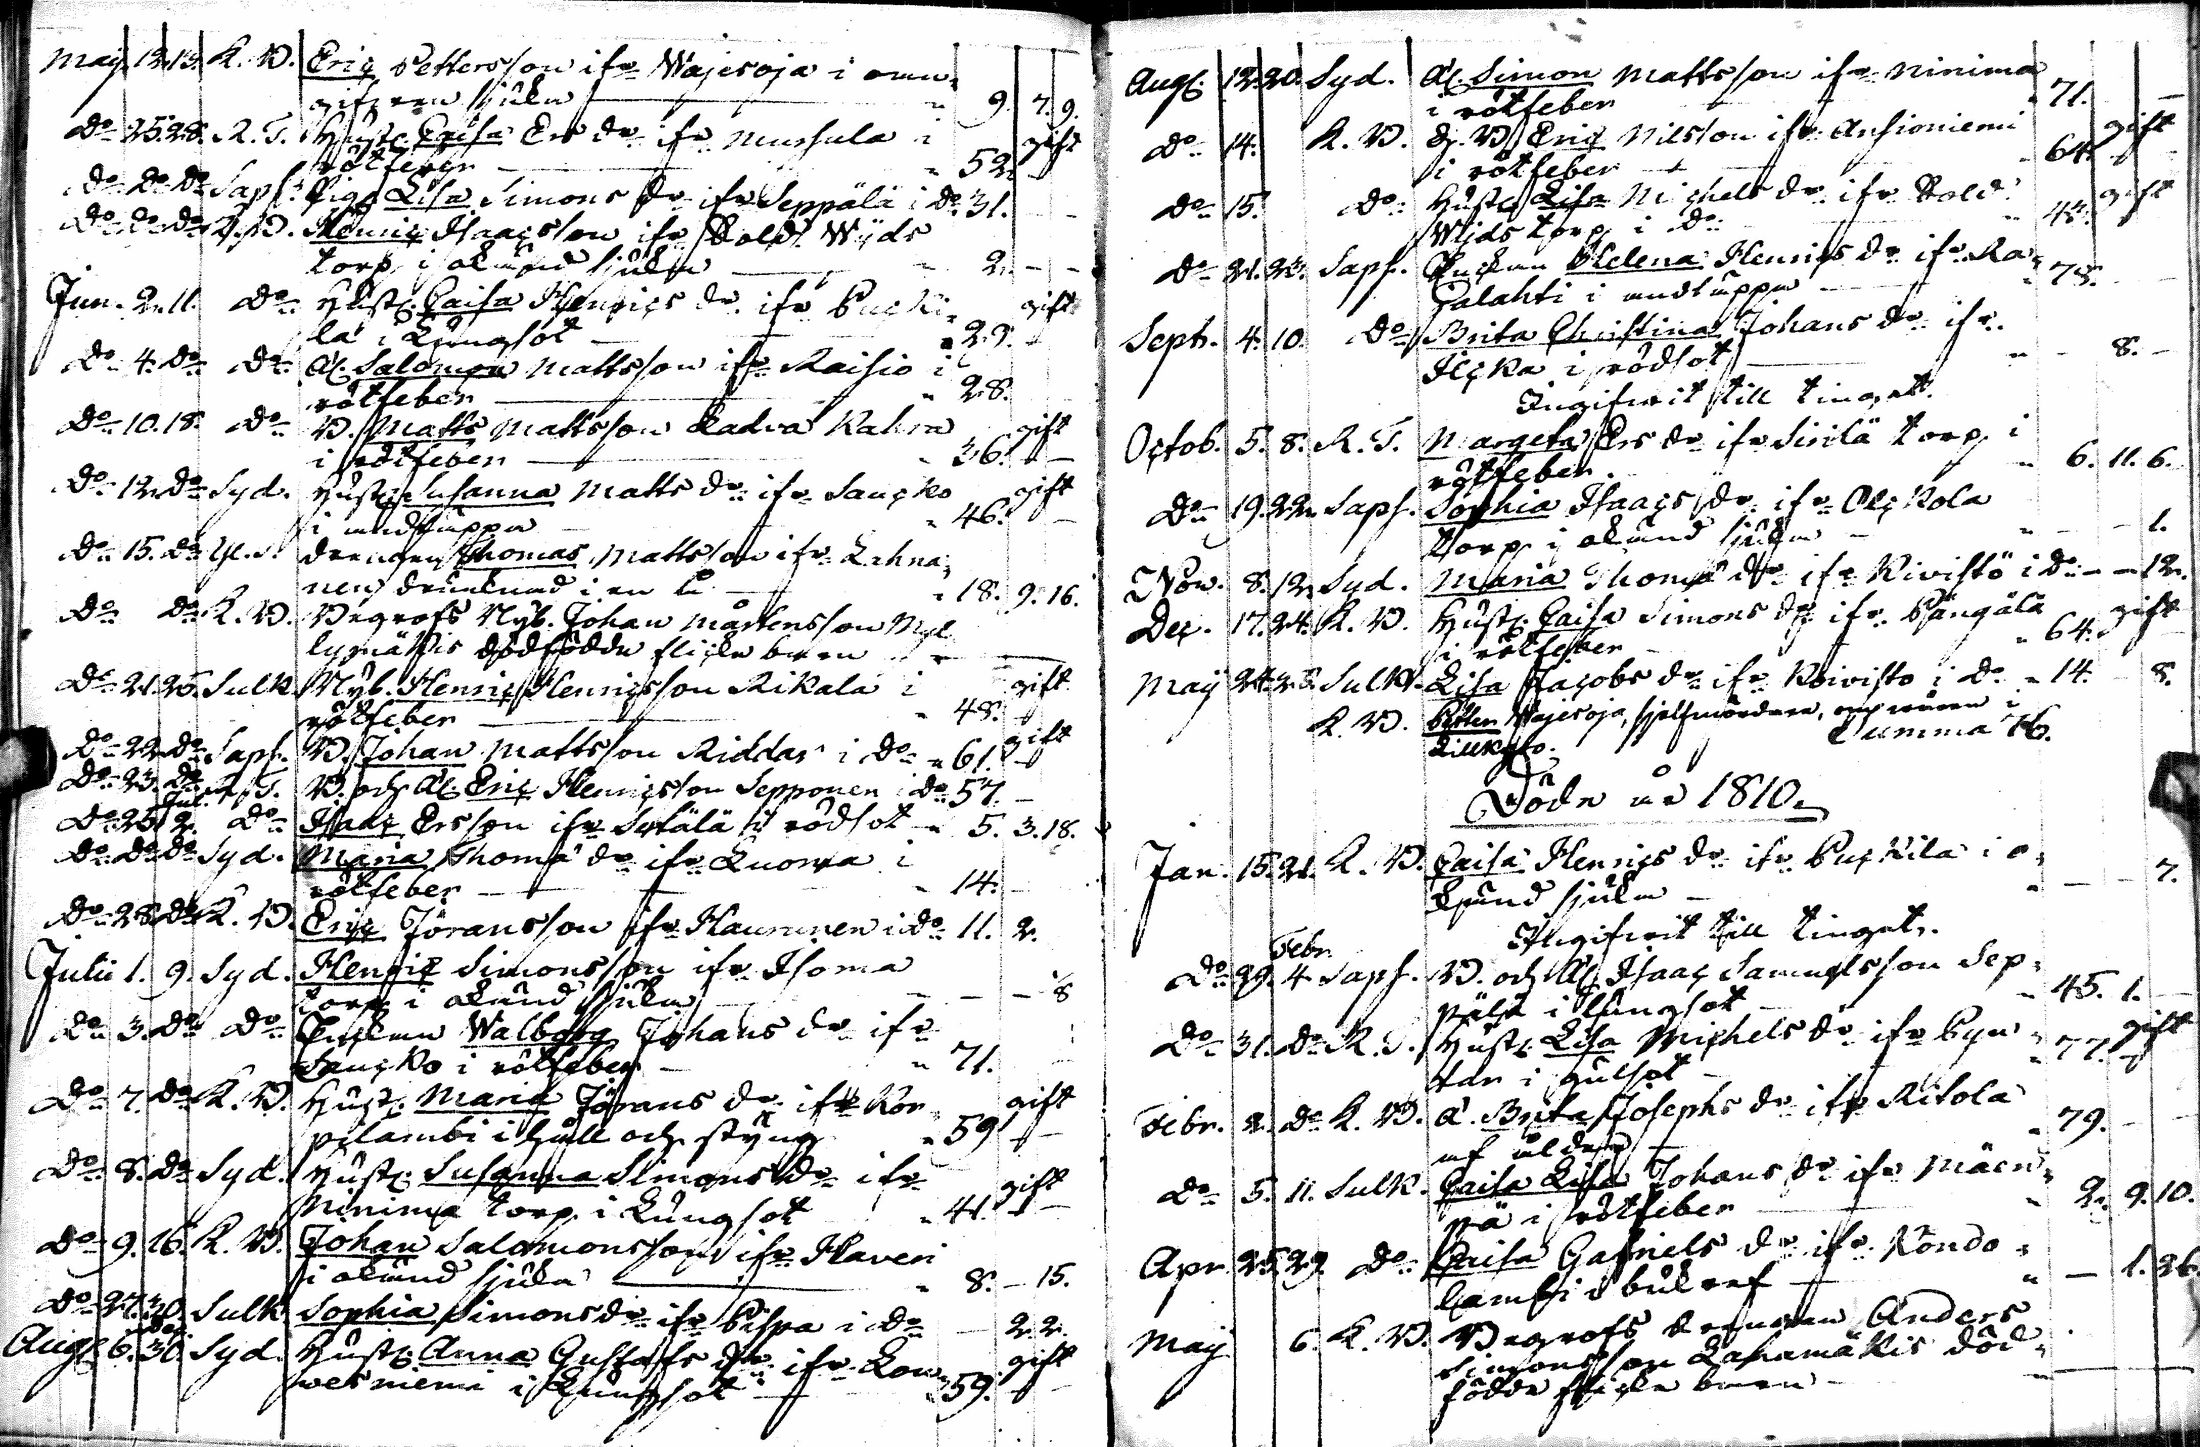 May 12. 13. K. W. Eric Pettersson ifr. Wajesoja i onn-
gifven sjukd. 9. 7. 9.
Do 25. 28. R. T. Hustr. Caisa Ers dr. ifr. Mursula i gift
rötfeber 52.
Do Do Do Saph. Pig. Lisa Simons dr. ifr. Seppälä i Do 31.
Do Do Do K. W. Henric Isaacsson ifr. Sold. Wijds
torp i okänd sjukd. 2.
Jun. 2. 11. Do Hustr. Caisa Henrics dr. ifr. Pucki- gift
la i Lungsot 29.
Do 4. Do Do Al. Salomon Mattsson ifr. Raisio i
rötfeber 28.
Do 10. 18. Do W. Matts Mattsson Ladva Kahra gift
i rötfeber 36.
Do 12. Do Syd. Hustr. Susanna Matts dr. ifr. Saucko gift
i andtäppa 46.
Do 15. Do drengen Thomas Mattsson ifr. Kahna-
nen drunknad i en å 18. 9. 16.
Do Do K. W. Nyb. Johan Mårtensson
dödfödde flicko barn
Do 21. 25. Sulk. Nyb. Henric Henricsson Rikala i gift
rötfeber 48.
Do 22. Do Saph. W. Johan Mattsson Riddar i Do 61. gift
Do 23. Do R. T. W. och Al. Eric Henricsson Sepponen i Do 57.
Do 25. Jul. 2. Do Isaac Ersson ifr. i rödsot 5. 3. 18.
Do Do Do Syd. Maria Thomæ dr. ifr. Luoma i
rötfeber 14.
Do 28. Do K. W. Eric Jöransson ifr. Haurunen i Do 11. 2.
Julii 1. 9. Syd. Henric Simonsson ifr. Isoma
torp i okänd sjukd. 8
Do 3. Do Do Enkan Walborg Johans dr. ifr.
Saucko i rötfeber 71.
Do 7. Do K. W. Hustr. Maria Jörans dr. ifr. Kor- gift
pilambi i håll och styng 59
Do 8. Do Syd. Hustr. Susanna Simons dr. ifr. gift
Ninima torp i Lungsot 41.
Do 9. 16. K. W. Johan Salomonsson ifr. Haveri
i okänd sjukd. 8. 15.
Do 27. 30. Sulk. Sophia Simons dr. ifr. Pispa i Do 22.
Aug. 6. 30. Syd. Hustr. Anna Gustafs dr. ifr. Kou- gift
vesniemi i Lungsot 59.
Aug. 12. 20. Syd. Al. Simon Mattsson ifr. Ninima
i rötfeber 71.
Do 14. K. W. Eric Nilsson ifr. Ansioniemi gift
i rötfeber 64.
Do 15. Do Hustr. Lisa Michels dr. ifr. Sold. gift
Wijds torp i Do 48.
Do 21. 23. Saph. Enckan Helena Henrics dr. ifr. Ka-
galahti i andtäppa 75.
Septr. 4. 10. Do Brita Christina Johans dr. ifr.
Ilcka i rödsot 8.
Ingifwit till tinget.
Octob. 5. 8. R. T. Margeta Ers dr. ifr. Sirilä torp i
rötfeber. 6. 11. 6.
Do 19. 22. Saph. Sophia Isaacs dr. ifr. Olckola
torp i okänd sjukd. 1.
Nov. 8. 12. Syd. Maria Thomæ dr. ifr. Kivistö i Do 12.
Dec. 17. 24. K. W. Hustr. Caisa Simons dr. ifr. Pängälä gift
i rötfeber 64.
May 24. 28. Sulk. Lisa Jacobs dr. ifr. Koivisto i Do 14. 8.
K. W. Petter Wajesoja, sjelfmördare,
Summa 76.
Döde år 1810.
Jan. 15. 21. K. W. Caisa Henrics dr. ifr. Puckila i o-
känd sjukd. 7.
Ingifwit till tinget.
Do 29. Febr. 4 Saph. W. och Al. Isaac Samuelsson Sep-
pälä i Lungsot 45. 1.
Do 31. Do R. T. Hustr. Lisa Michels dr. ifr. gift
i gulsot 77.
Febr. 2. Do K. W. Brita Josephs dr. ifr. Ritola
af ålder 79.
Do 5. 11. Sulk. Caisa Lisa Johans dr. ifr. Mäen-
pä i rötfeber 2. 9. 10.
Apr. 25. 29. Do Caisa Gabriels dr. ifr. Köndo-
lambi i bukref 1. 26.
May 6. K. W. drengen Anders
Simonsson Lahamäkis död-
födde flicko barn